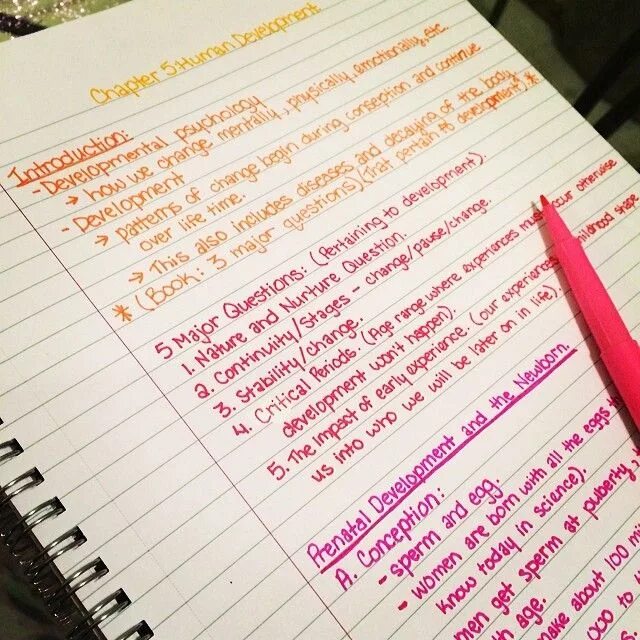 Chapter 5: Human Development
Introduction:
- Developmental psychology
→ how we change mentally, physically, emotionally, etc.
- Development
→ patterns of change begin during conseption and continue
over life time.
→ This also includes diseases and decaying of the body.
* (Book: 3 major questions) (that pertain to development) *
5 Major Questions: (Pertaining to development).
1. Nature and Nurture Question.
2. Continuity/Stages - change/pause/change.
3. Stability/change.
4. Critical Periods. (Age range where experiences must otherwise
development won't happen).
5. The impact of early experience. (our experiences childhood shape
us into who we will be later on in life).
Prenatal Development and the Newborn.
A. Conception:
- sperm and egg.
- women are both with all the eggs
know today in science).
men get sperm at puberty,
age.
about 100